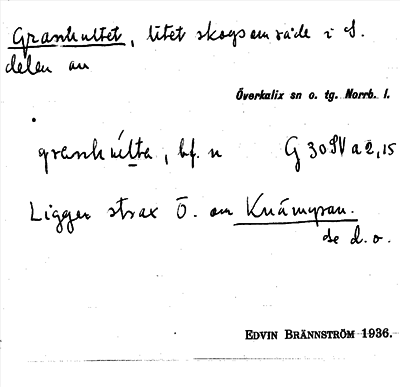 Granhultet, litet skogsområde i S.
delen av
Överkalix sn o. tg. Norrb. l.
granhúlta, bf. n G 30 SV a 2, 15
Ligger strax Ö. om Knämyran.
se d. o.
EDVIN BRÄNNSTRÖM 1936.